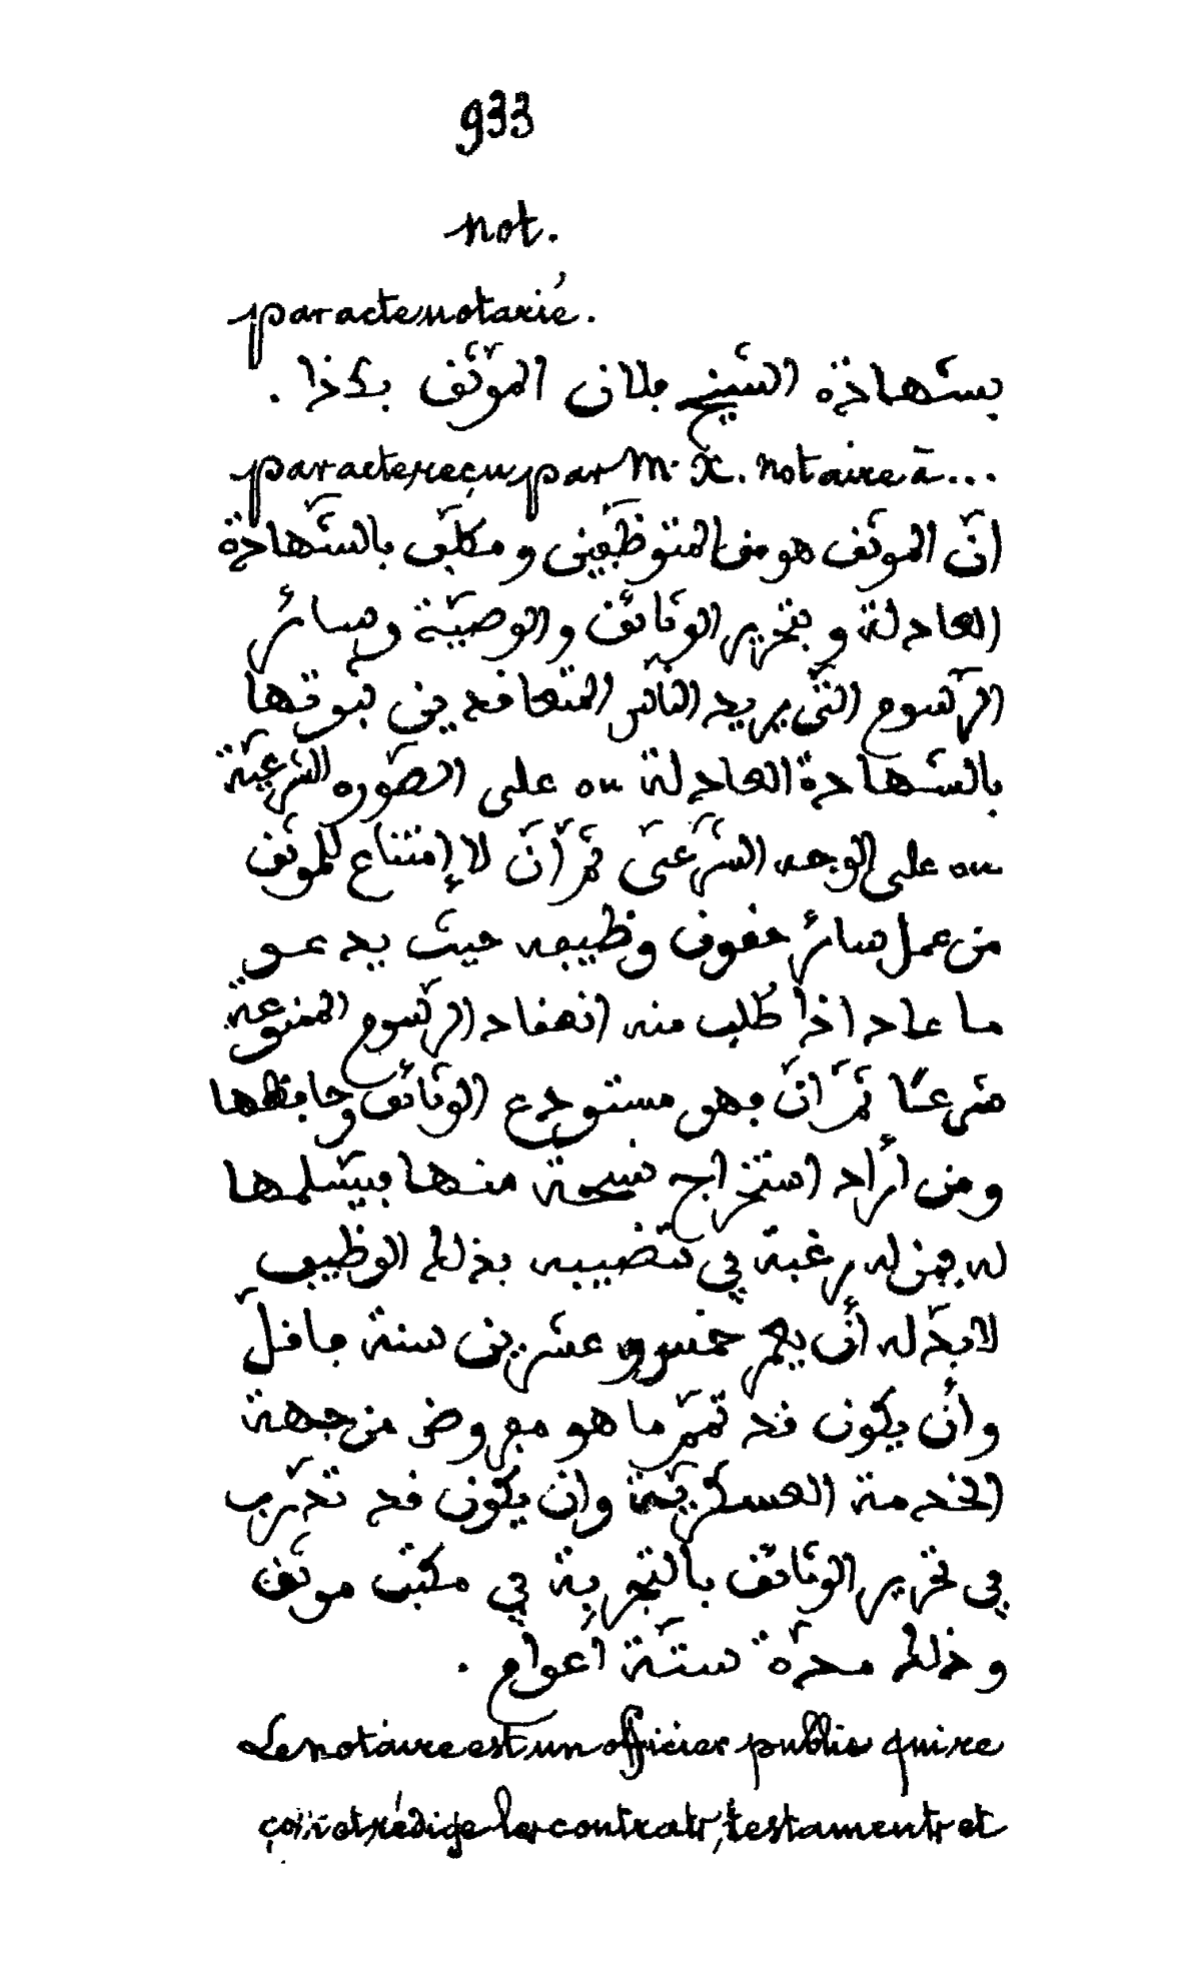 933
not.
par acte notarié.
بشهادة الشيخ فلان الموثّق بكذا .
par acte reçu par M. X. notaire à...
انّ الموثق هو من المتوظّفين و مكلّف بالشّهادة
العادلة و بتحرير الوثائق والوصيّة وسائر
الرّسوم التّي يريد النّاس المتعاقدين ثبوتها
بالشّهادة العادلة ou على الصّوره الشّرعيّة
ou على الوجه الشّرعىّ ثمّ أنّ لا إمتناع للموثّق
من عمل سائر حقوق وظيفه حيث يدعو
ما عاد اذا طلب منه انعقاد الرّسوم الممنوعة
شرعًا ثمّ انّ فهو مستودع الوثائق وحافظها
و من أراد استخراج نسخة منها فيسّلمها
له فمن له رغبة في تنصيبه بذلك الوظيف
لا بدّ له أن يعمر خمس و عشرين سنة فاقلّ
وأن يكون قد تمّم ما هو مفروض من جهة
الخدمة العسكريّة وان يكون قد تدرّب
في تحرير الوثائق بالتّجربة في مكتب موثّق
و ذلك مدّة ستّة أعوام .
Le notaire est un officier public qui re
çoit et rédige les contrats, testaments et